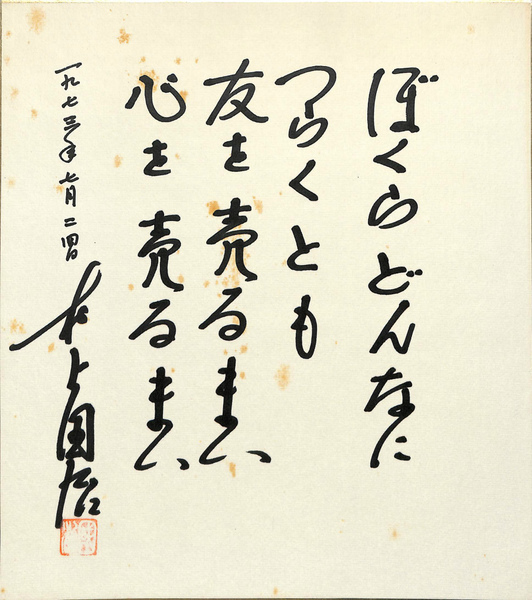 ぼくらどんなに
つらくとも
友を売るまい
心を売るまい
一九七三年七月二四日
村上国治